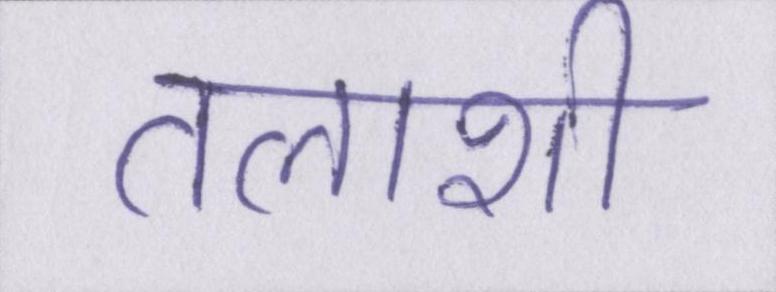 तलाशी